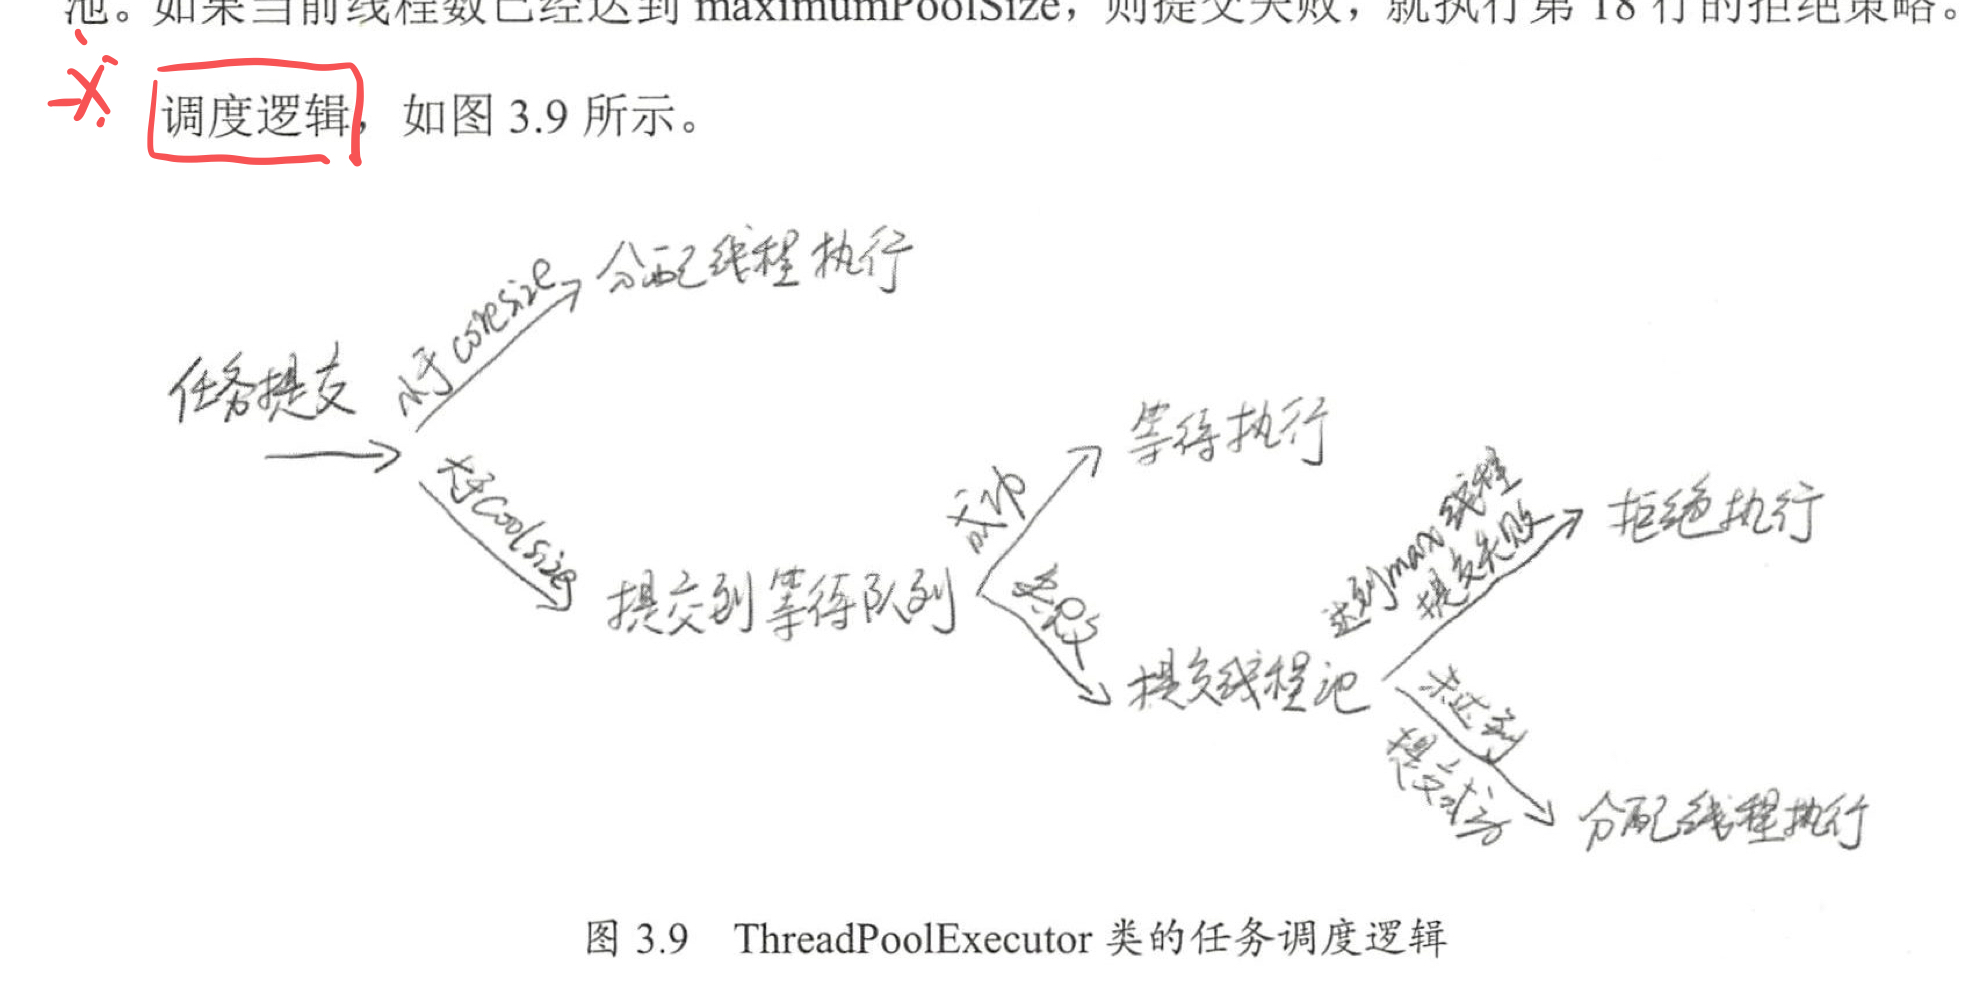 池。如果当前线程数已经达到 maximumPoolSize，则提交失败，就执行第 18 行的拒绝策略。
调度逻辑，如图 3.9 所示。
分配线程执行
小于coresize
任务提交
大于Coolsize
提交到等待队列
成功
等待执行
失败
提交线程池
达到max线程
提交失败
拒绝执行
未达到
提交成功
分配线程执行
图 3.9 ThreadPoolExecutor 类的任务调度逻辑